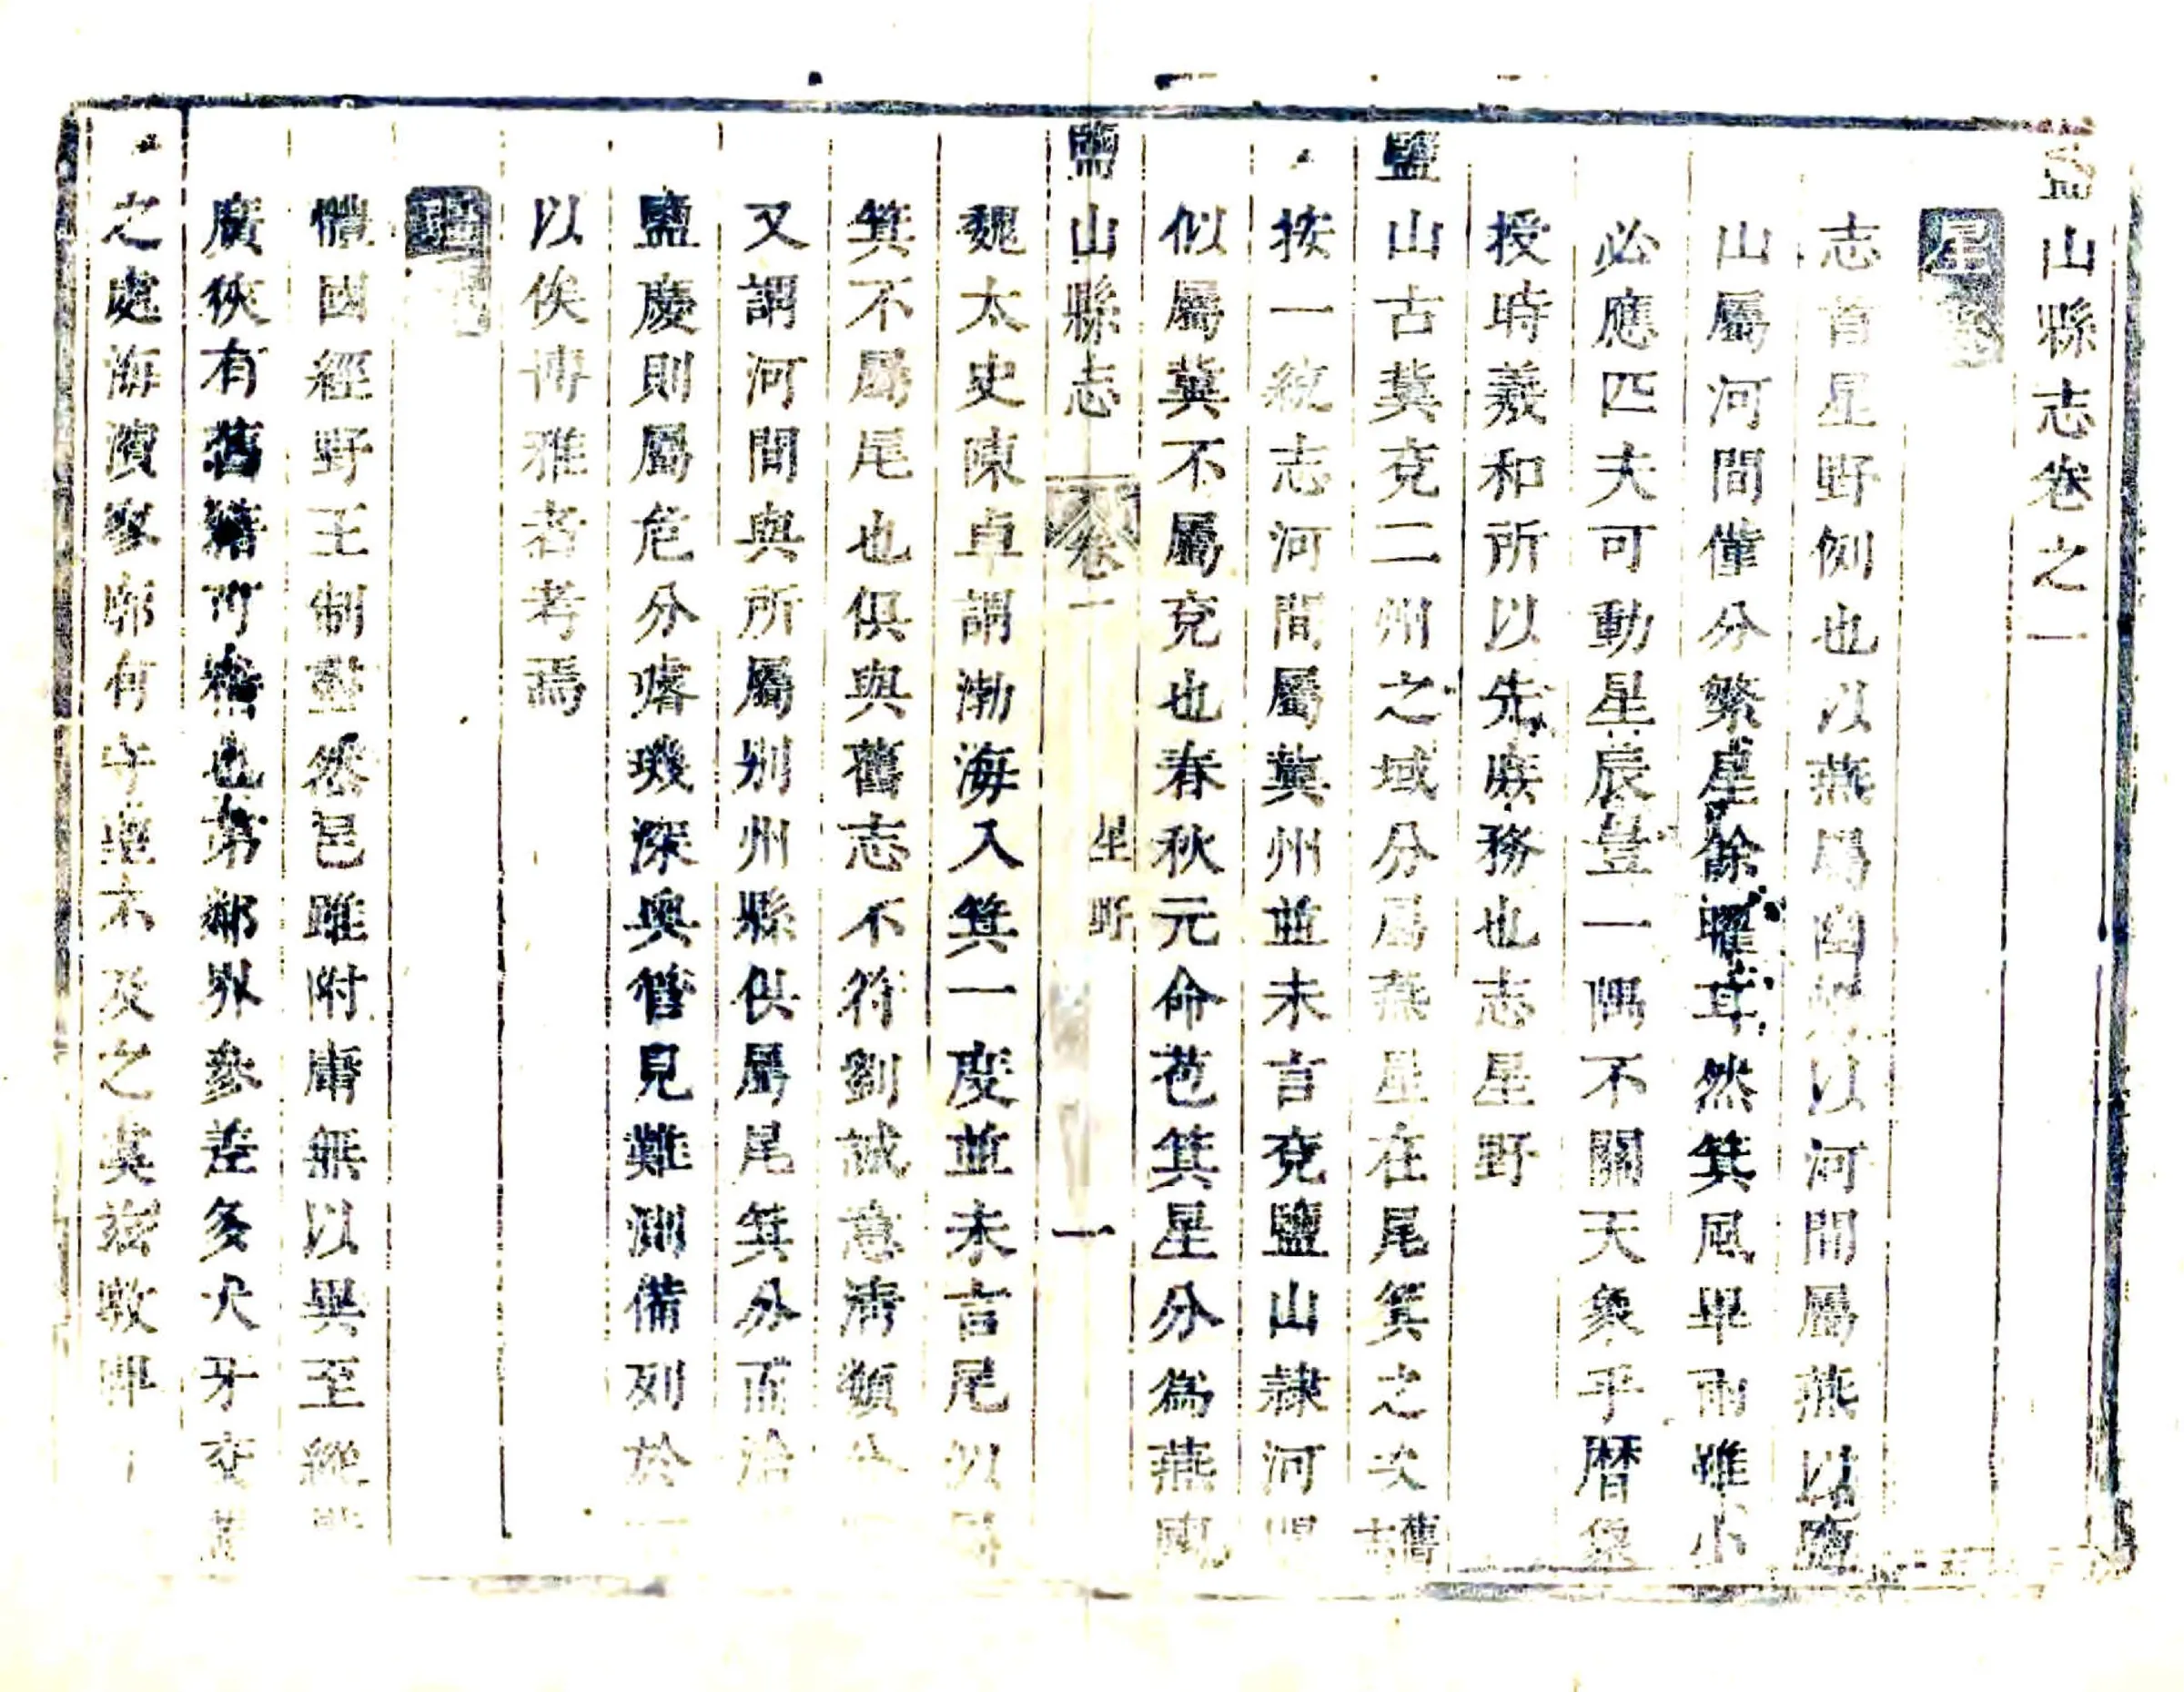 鹽山縣志卷之一
星野
志首星野例也以燕屬幽以河間屬燕以鹽
山屬河間僅分繁星餘曜耳然箕風畢雨雖小
必應匹夫可動星辰豈一隅不關天象乎曆
授時羲和所以先疾務也志星野
鹽山古冀兗二州之域分屬燕星在尾箕之次舊志
按一統志河間屬冀州並未言兗鹽山隷河間
似屬冀不屬兗也春秋元命苞箕星分爲燕
鹽山縣志 卷一 星野 一
魏太史陳卓謂渤海入箕一度並未言尾似
箕不屬尾也俱與舊志不符劉誠意淸類
又謂河間與所屬別州縣俱屬尾箕分而
鹽慶則屬危分璿璣深奧管見難測備列於
以俟博雅者考焉
體國經野王制整然邑雖附庸無以異至
廣狹有舊籍可稽也第鄰界參差多犬牙交
之處海濱寥廓有 及之